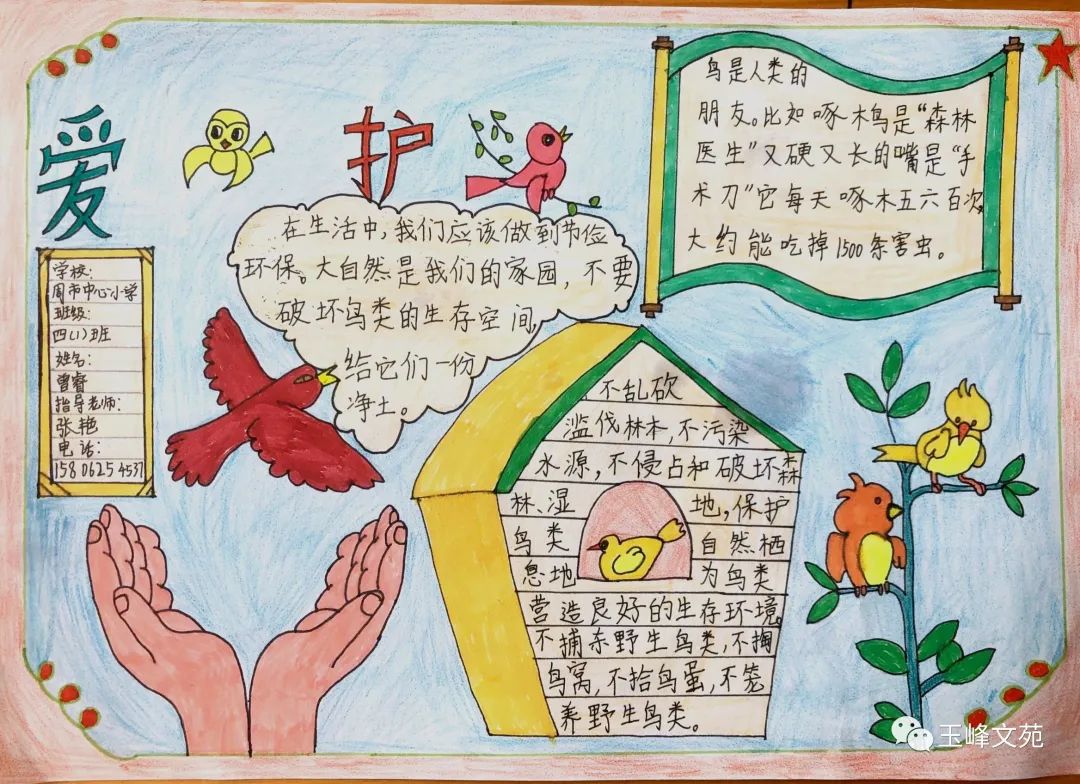 爱
护
学校：
周市中心小学
班级：
四（1）班
姓名：
曾睿
指导老师：
张艳
电话：
15806254537
在生活中，我们应该做到节俭
环保。大自然是我们的家园，不要
破坏鸟类的生存空间，
给它们一份
净土。
鸟是人类的
朋友。比如啄木鸟是“森林
医生”又硬又长的嘴是“手
术刀”它每天啄木五六百次，
大约能吃掉1500条害虫。
不乱砍
滥伐林木，不污染
水源，不侵占和破坏森
林、湿地，保护
鸟类自然栖
息地为鸟类
营造良好的生存环境。
不捕杀野生鸟类，不掏
鸟窝，不拾鸟蛋，不笼
养野生鸟类。
玉峰文苑